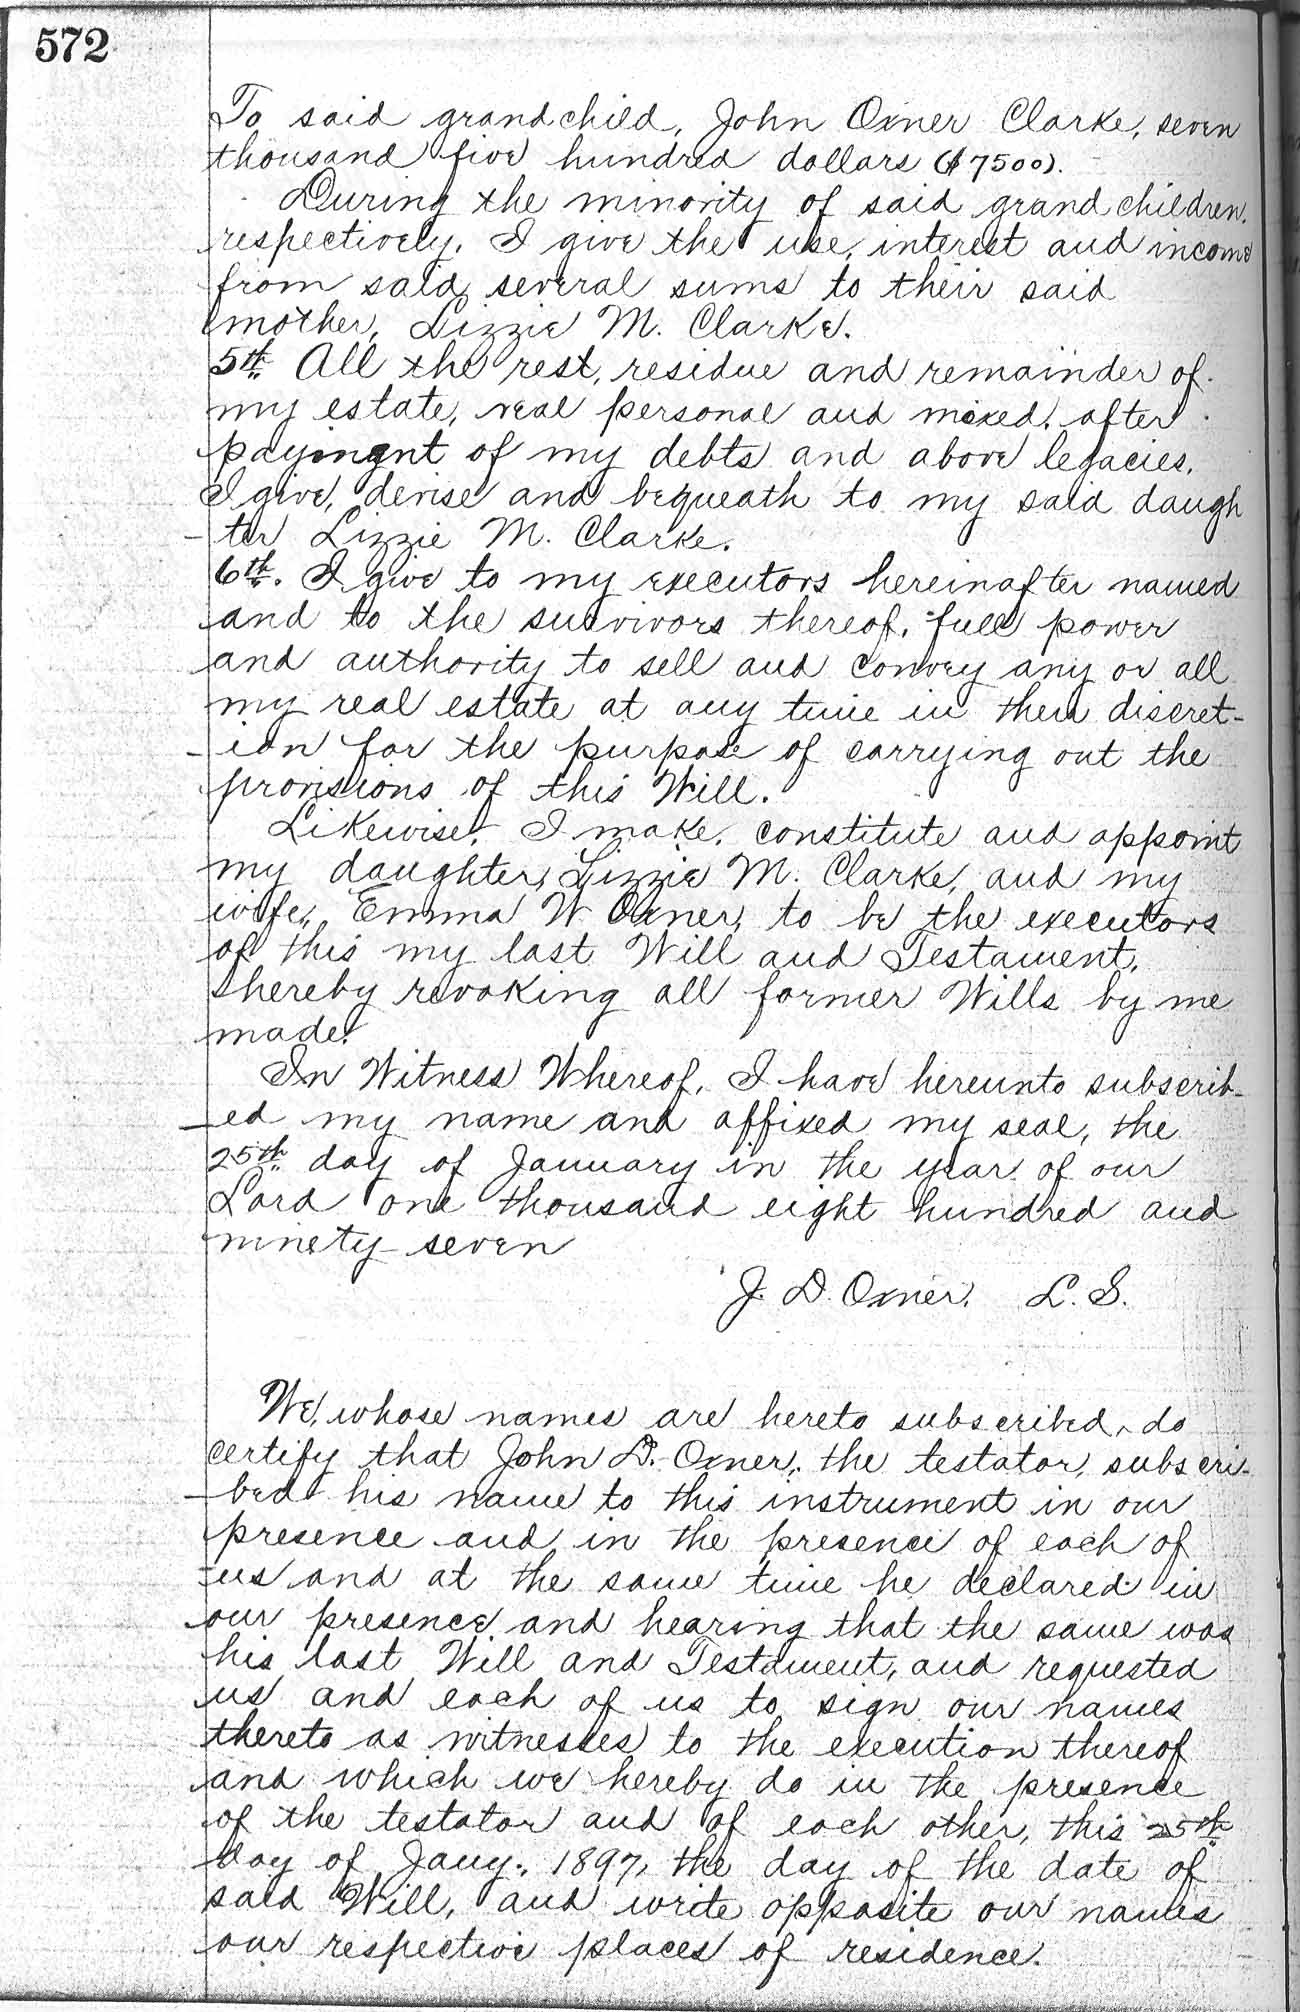 572
To said grandchild, John Oxner Clarke, seven
thousand five hundred dollars ($7500).
During the minority of said grandchildren,
respectively, I give the use, interest and income
from said several sums to their said
mother, Lizzie M. Clarke.
5th. All the rest, residue and remainder of
my estate, real personal and mixed, after
payment of my debts and above legacies,
I give, devise and bequeath to my said daugh
-ter Lizzie M. Clarke.
6th. I give to my executors hereinafter named
and to the survivors thereof, full power
and authority to sell and convey any or all
my real estate at any time in their discret-
-ion for the purpose of carrying out the
provisions of this Will.
Likewise, I make, constitute and appoint
my daughter, Lizzie M. Clarke, and my
wife, Emma W. Oxner, to be the executors
of this my last Will and Testament,
hereby revoking all former Wills by me
made.
In Witness Whereof, I have hereunto subscrib-
-ed my name and affixed my seal, the
25th day of January in the year of our
Lord one thousand eight hundred and
ninety seven
J. D. Oxner. L. S.
We, whose names are hereto subscribed, do
certify that John D. Oxner, the testator, subscri-
-bed his name to this instrument in our
presence and in the presence of each of
us and at the same time he declared in
our presence and hearing that the same was
his last Will and Testament, and requested
us and each of us to sign our names
thereto as witnesses to the execution thereof
and which we hereby do in the presence
of the testator and of each other, this 25th
day of Jany., 1897, the day of the date of
said Will, and write opposite our names
our respective places of residence.